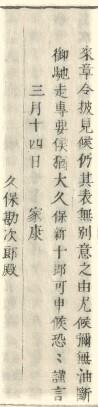 来章令披見候仍其表無別意之由尤候彌無油断
御馳走専要候猶大久保新十郎可申候恐々謹言
三月十四日　家康
久保勘次郎殿